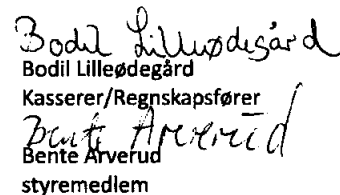 Bodil Lilleødegård
Bodil Lilleødegård
Kasserer/Regnskapsfører
Bente Arverud
Bente Arverud
styremedlem